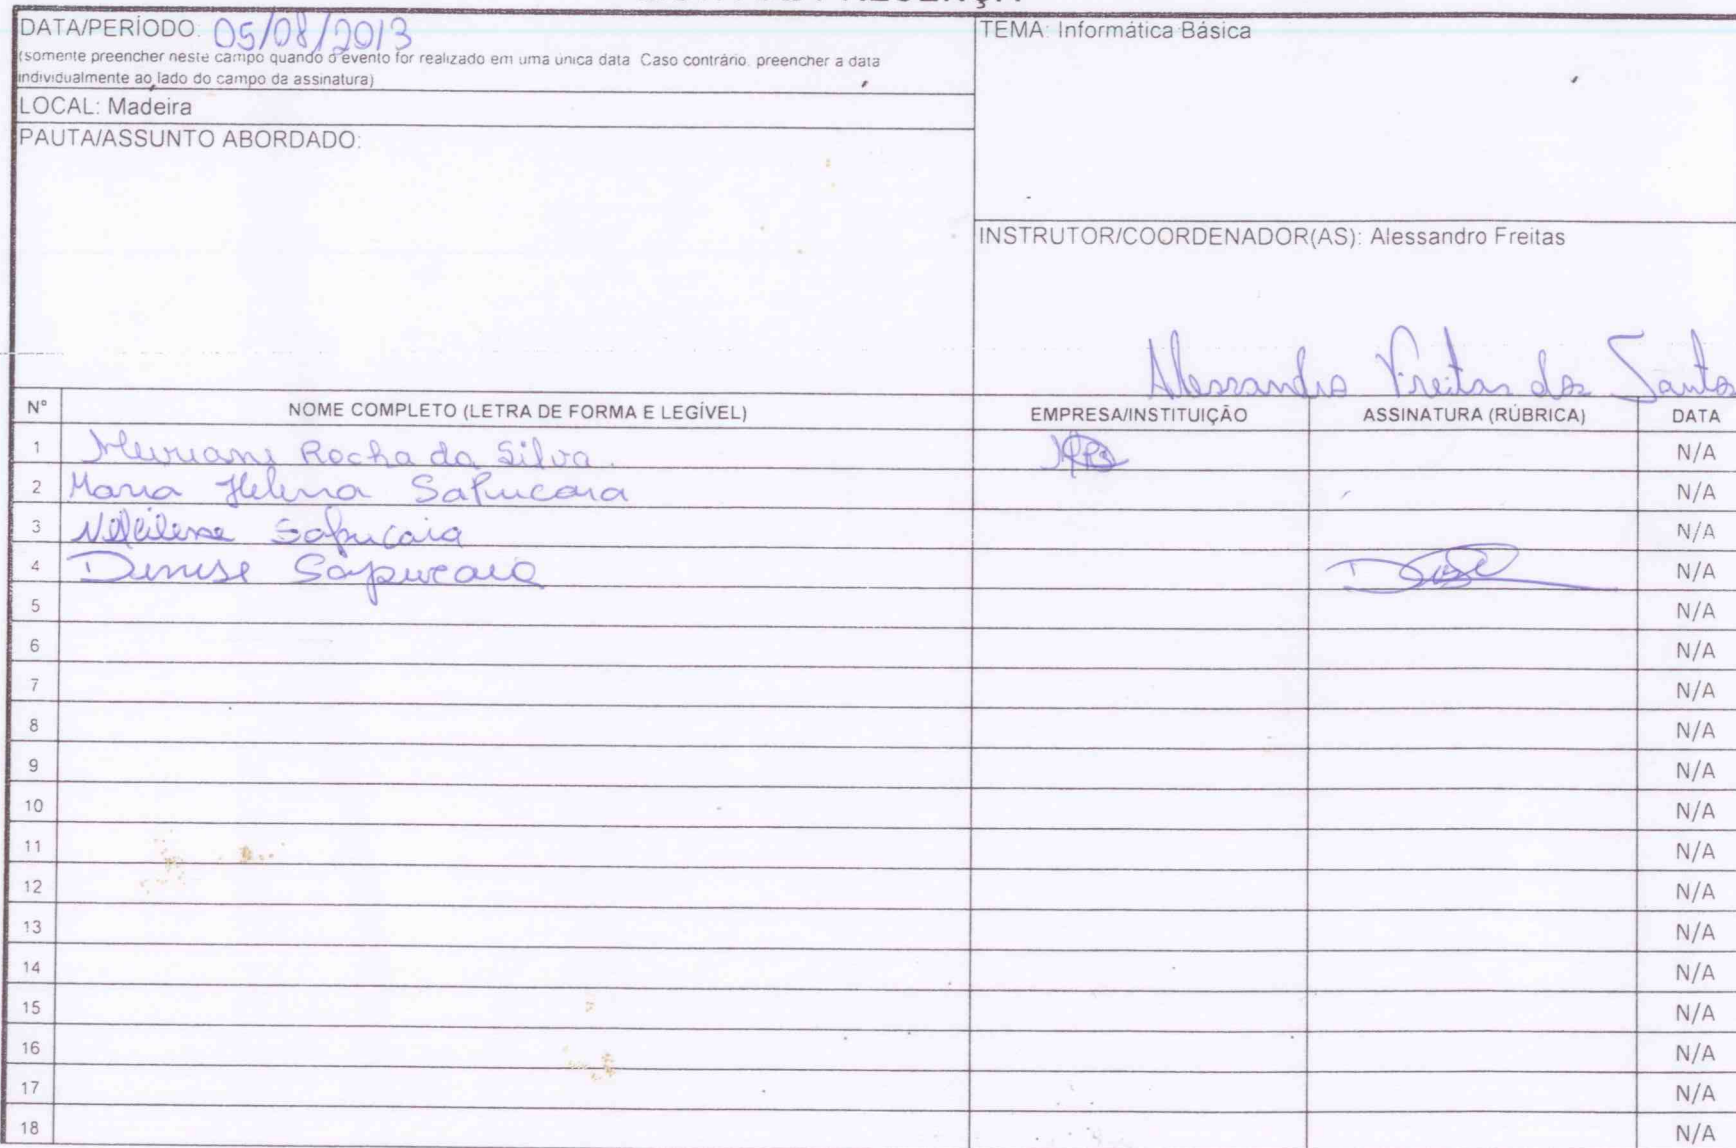 DATA/PERÍODO: 05/08/2013
(somente preencher neste campo quando o evento for realizado em uma única data. Caso contrário, preencher a data
individualmente ao lado do campo da assinatura)
LOCAL: Madeira
PAUTA/ASSUNTO ABORDADO:
TEMA: Informática Básica
INSTRUTOR/COORDENADOR(AS): Alessandro Freitas
Alessandro Freitas dos Santos
Nº NOME COMPLETO (LETRA DE FORMA E LEGÍVEL) EMPRESA/INSTITUIÇÃO ASSINATURA (RÚBRICA) DATA
1 Rocha da Silva. N/A
2 Maria Helena Sapucaia N/A
3 Sapucaia N/A
4 Denise Sapucaia N/A
5 N/A
6 N/A
7 N/A
8 N/A
9 N/A
10 N/A
11 N/A
12 N/A
13 N/A
14 N/A
15 N/A
16 N/A
17 N/A
18 N/A